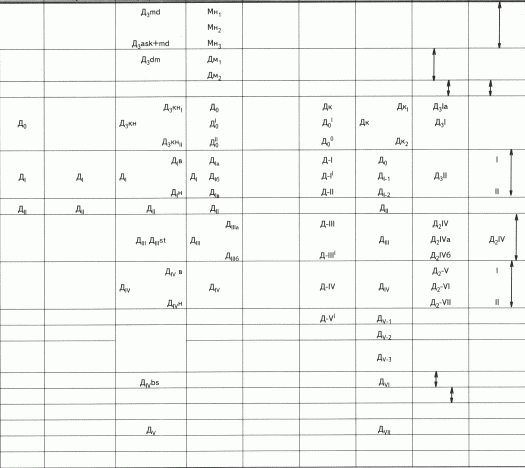 Д₃md Мн₁
Мн₂
Д₃ask+md Мн₃
Д₃dm Дм₁
Дм₂
Д₃кн_I Д₀ Дк Дк_I Д₃Ia
Д₀ Д₃кн Д₀^I Д₀^I Дк Д₃I
Д₃кн_II Д₀^II Д₀⁰ Дк₂
Д_Iв Д_Ia Д-I Д₀ I
Д_I Д_I Д_I Д_I Д_Iб Д-I^I Д_I-1 Д₃II
Д_Iн Д_Ia Д-II Д_I-2 II
Д_II Д_II Д_II Д_II Д_II
Д_IIIa Д-III Д₂IV
Д_III Д_III st Д_III Д_III Д₂IVa Д₂IV
Д_IIIб Д-III^I Д₂IVб
Д_IV в Д₂-V I
Д_IV Д_IV Д-IV Д_IV Д₂-VI
Д_IVн Д₂-VII II
Д-V^I Д_V-1
Д_V-2
Д_V-3
Д_IVbs Д_VI
Д_V Д_VII